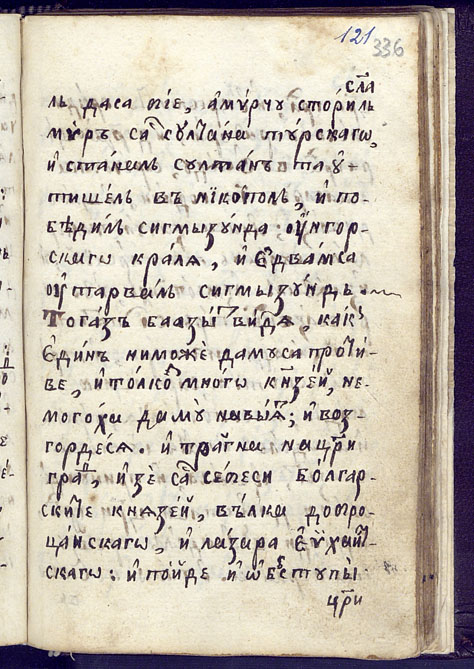 121
336
сл҃а
ль даса пїе, а҆мꙋ́рчꙋ сто́риль
мѵ́ръ са сꙋлтана тꙋ́рскагѡ,
и҆ стана́ль сꙋлта́нъ
тише́ль въ нїко́поль, и҆ по-
бѣди́ль сигмꙋзꙋ́нда оу҆нгор-
скагѡ кра́лѧ, и҆ є҆два́мса
оу҆тарва́ль сигмꙋзꙋ́ндь.
Тогазъ баѧзы́т ви́дѧ, ка́къ
є҆ди́нъ ниможѐ дамꙋса проти́-
ве, и҆ то́лкѡ мно́гѡ кн҃зей, не-
мого́ха дамꙋ̀ навыѧ́т; и҆ воз-
горде́сѧ. и҆ тра́гна на цр҃и
гра́д, и҆ зѐ са се́песи бо́лгар-
ските кнѧзе́й, въ́лка добро-
ца́нскагѡ, и҆ ла́зара є҆ѵ҆хаит-
скагѡ: и҆ по́йде и҆ ѡ҆бстꙋпы̀
цр҃и